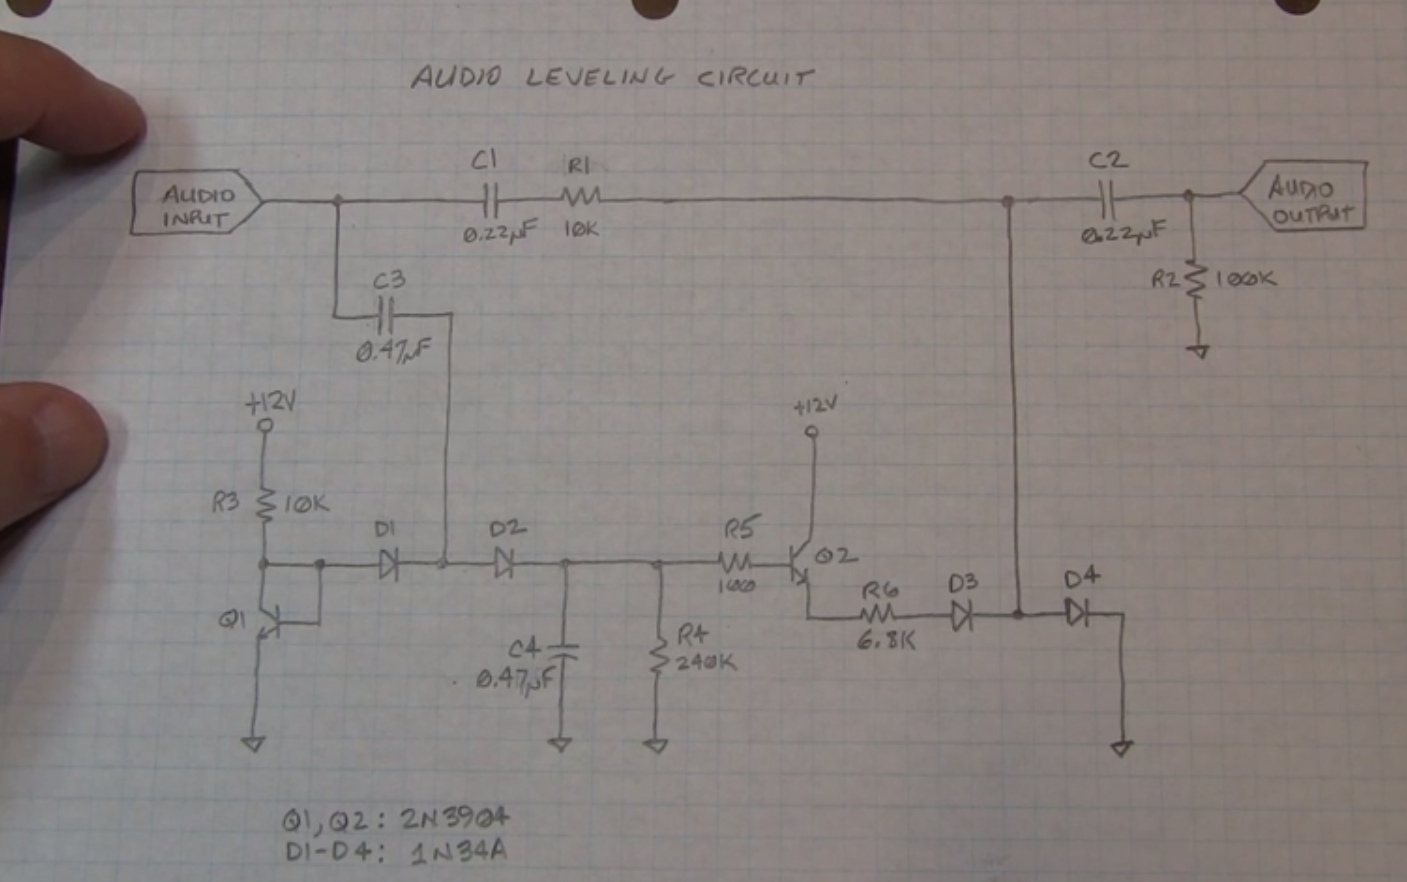 AUDIO LEVELING CIRCUIT
C1
R1
C2
AUDIO
INPUT
AUDIO
OUTPUT
0.22µF
10K
0.22µF
C3
R2
100K
0.47µF
+12V
+12V
R3
10K
D1
D2
R5
Q2
100
D3
D4
R6
Q1
6.8K
C4
R4
0.47µF
240K
Q1, Q2: 2N3904
D1-D4: 1N34A